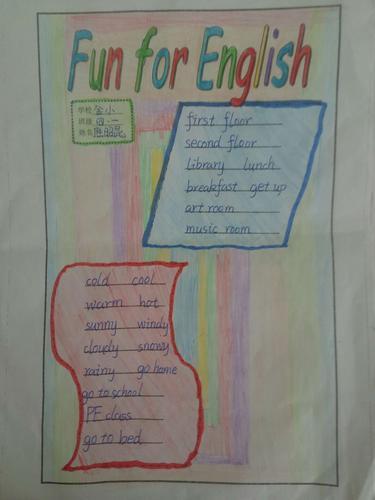 Fun for English
学校 金小
班级 四.一
姓名
first floor
second floor
Library lunch
breakfast get up
art room
music room
cold cool
warm hot
sunny windy
cloudy snowy
rainy go home
go to school
PE class
go to bed